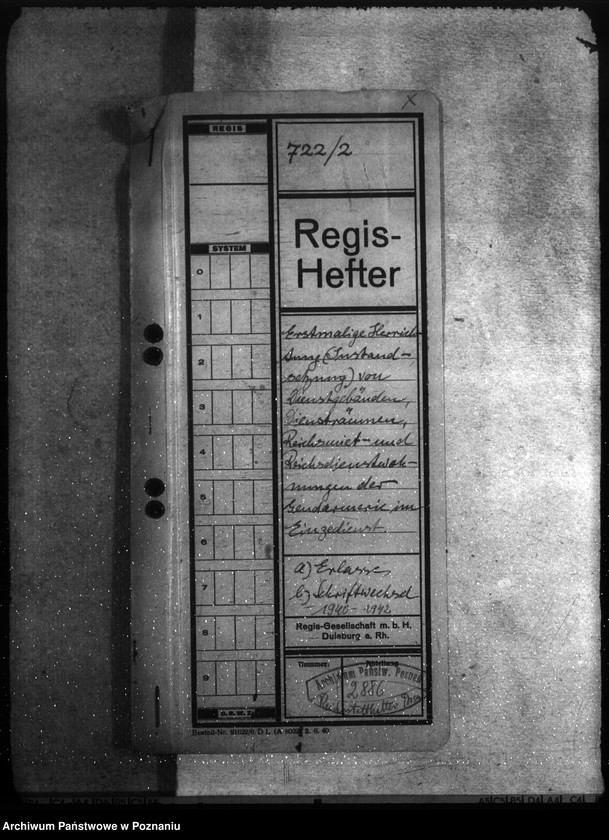 REGIS
X
722/2
Regis-
Hefter
SYSTEM
0
1
2
3
4
5
6
7
8
9
Erstmalige Herrich-
tung (Instand-
setzung) von
Dienstgebäuden,
Diensträumen,
Reichsmiet- und
Reichsdienstwoh-
nungen der
Gendarmerie im
Einzedienst.
a) Erlasse,
b) Schriftwechsel
1940-1942
Regis-Gesellschaft m. b. H.
Duisburg a. Rh.
Nummer:
Abteilung
Archiwum Państw. Poznań
2886
Reichsstatthalter
D.R.W.Z.
Bestell-Nr.
Archiwum Państwowe w Poznaniu